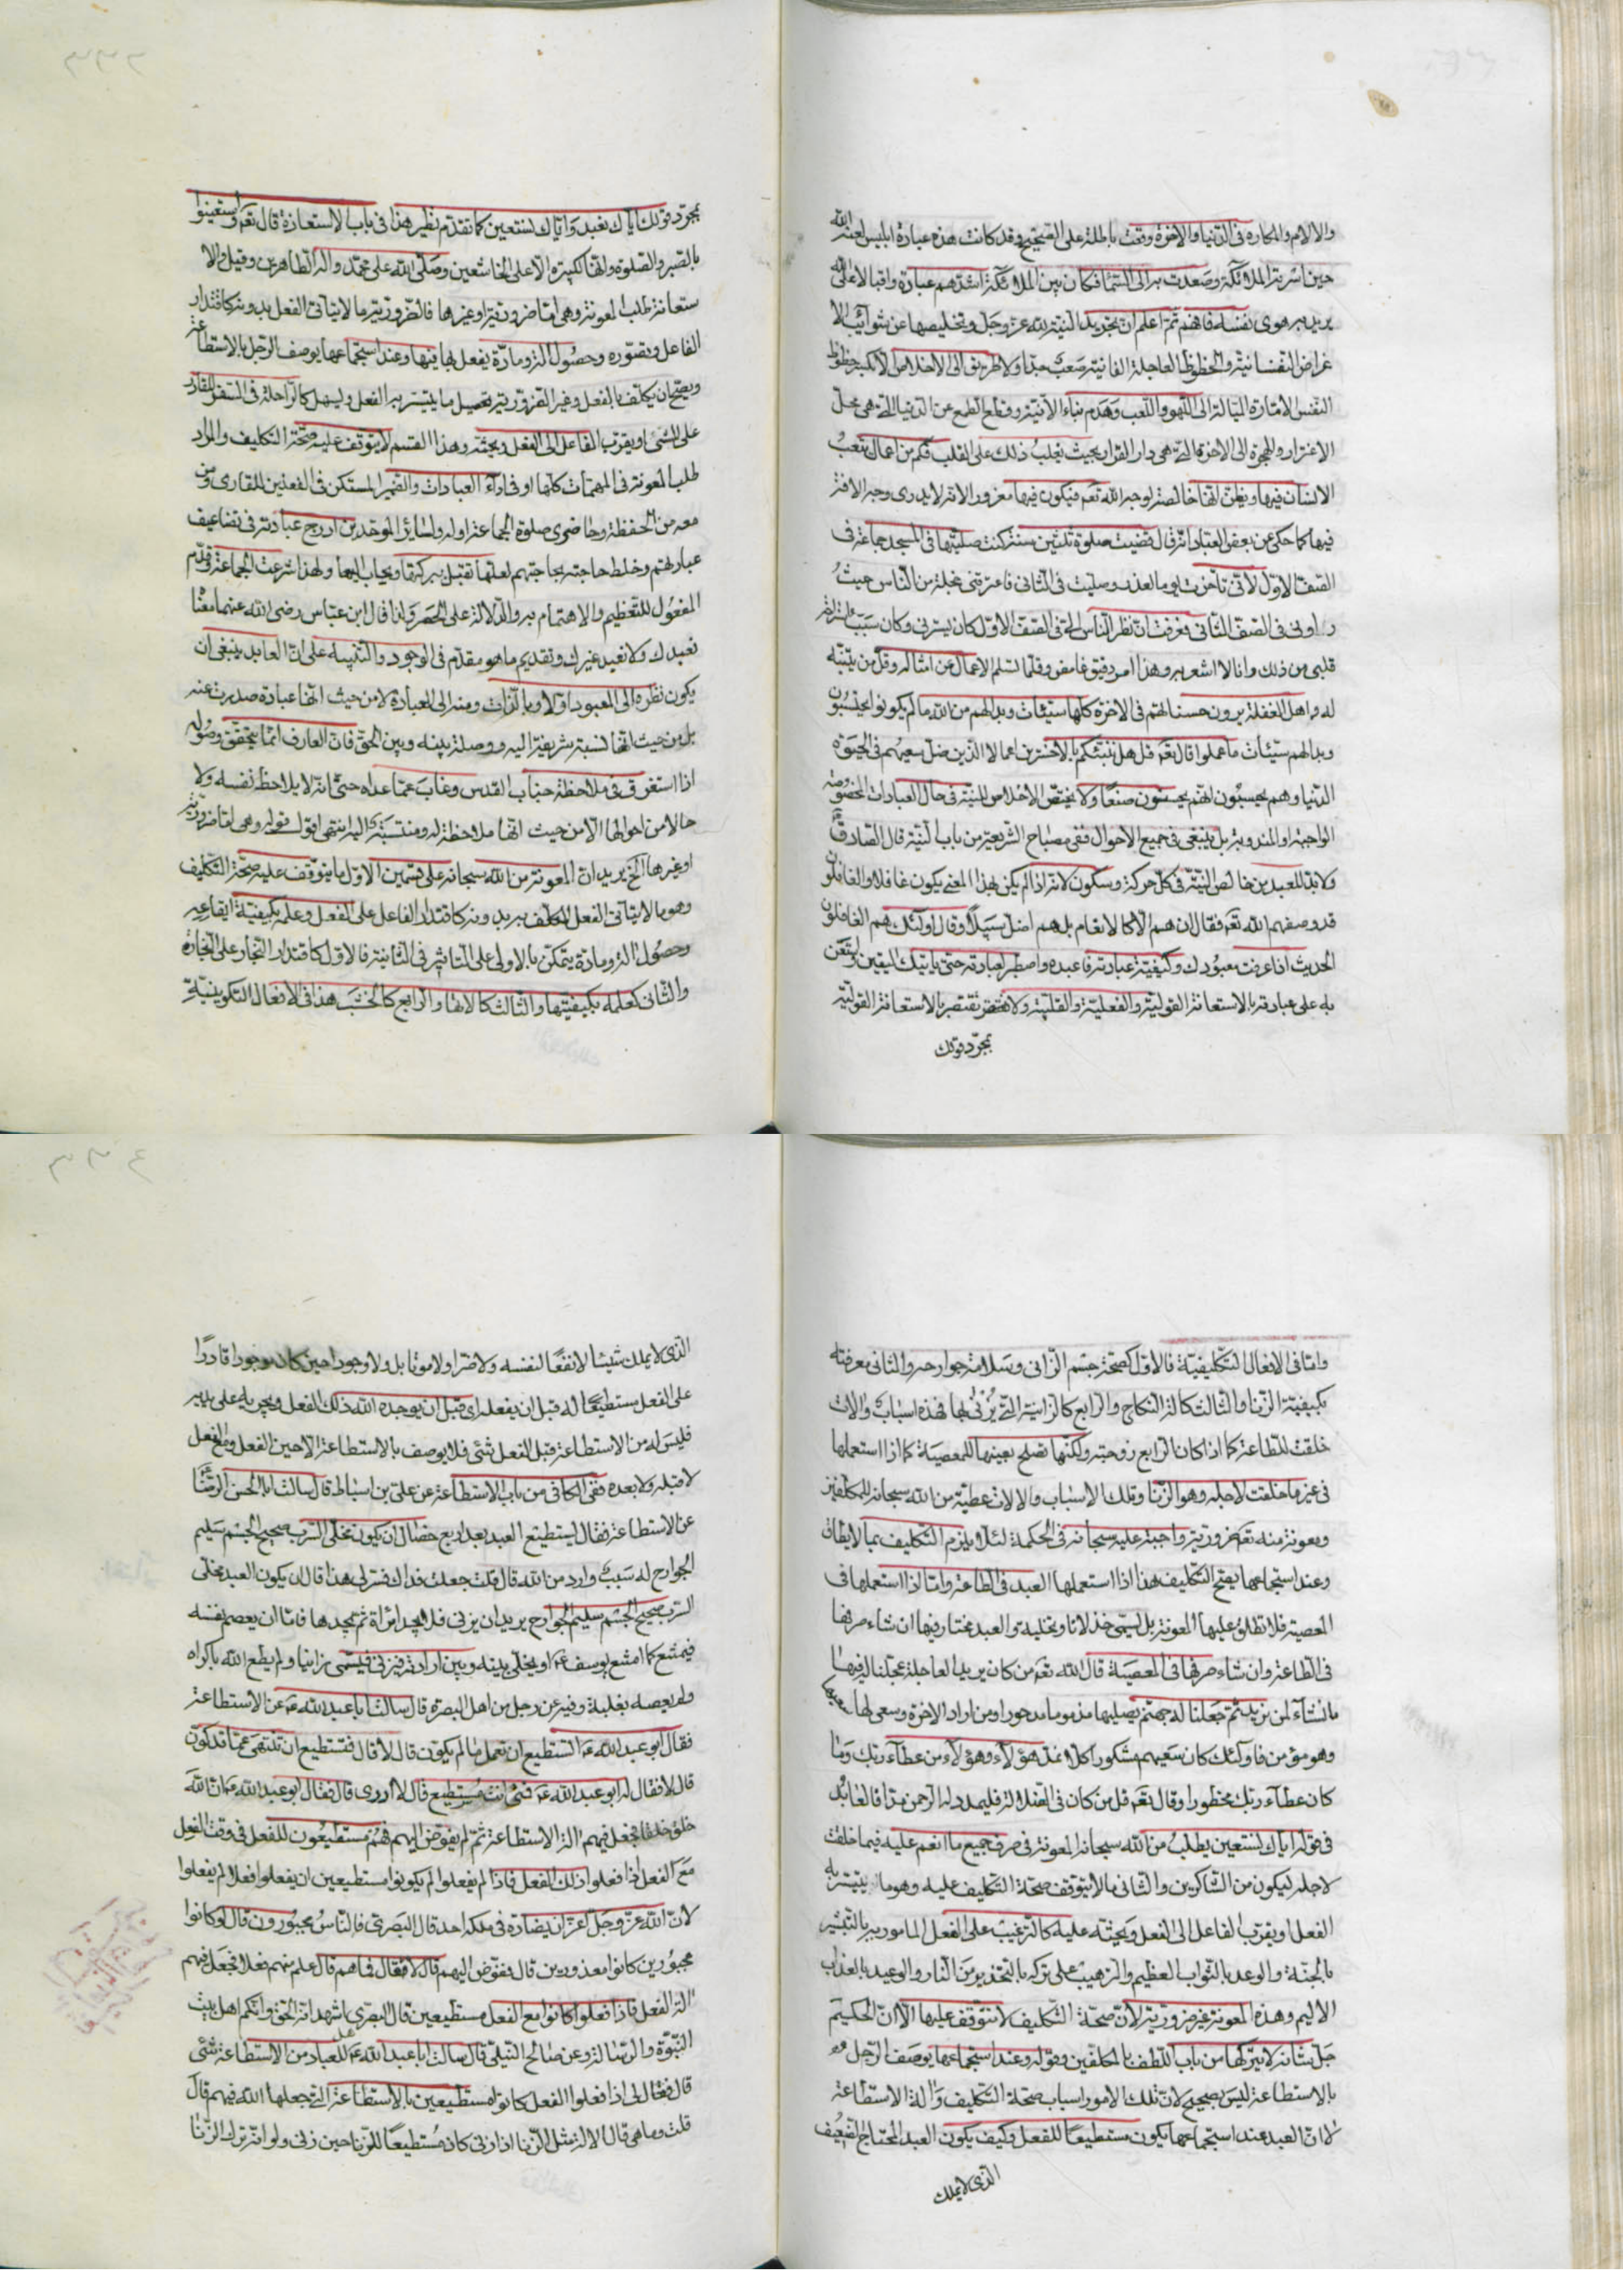 والالام والمكاره فى الدّنيا والاخرة وقعت باطلة على الصّحيح وقد كانت هذه عبادة ابليس لعنه الله
حين اسرته الملائكة وصعدت به الى السّماء فكان بين الملائكة اشدّهم عبادة واقبالا على الله
يريد به هوى نفسه فافهم ثمّ اعلم انّ تجريد النّية لله عزّ وجلّ وتخليصها عن شوائب الا
غراض النّفسانيّة والحظوظ العاجلة الفانية صَعب جدّا ولا طريق الى الاخلاص الّا بكسر حظوظ
النّفس الامّارة الميّالة الى اللّهو واللّعب وهَدم بناء الانّية وقطع الطمع عن الدّنيا الّتى هى محلّ
الاغترار والهجرة الى الاخرة الّتى هى دار القرار بحيث يغلبُ ذلك على القلب فكم من اعمال يتعبُ
الانسان فيها ويظنّ انّها خالصة لوجه الله تعَ فيكون فيها مغرورا لانّه لا يدرى وجه الافة
فيها كما حكى عن بعض العبّاد انّه قال قضيت صلوة ثلثين سنة كنت صلّيتها فى المسجد جماعة فى
الصّف الاوّل لانّى تاخّرت يوما لعذر وصلّيت فى الثّانى فاعترتنى خجلة من النّاس حيثُ
راونى فى الصّف الثّانى فعرفت انّ نظر النّاس الىّ فى الصّف الاوّل كان يسرّنى وكان سَبَب استراحة
قلبى من ذلك وانا لا اشعر به وهذا امر دقيق غامض وقلّما تسلم الاعمال عن امثاله وقلّ من يتنبّه
له واهل الغفلة يرون حسناتهم فى الاخرة كلّها سيّئات وبدا لهم من الله ما لم يكونوا يحتسبُون
وبدا لهم سيّئات ما عملوا قال تعَ قل هل ننبّئكم بالاخسرين اعمالا الّذين ضلّ سعيهم فى الحيٰوة
الدّنيا وهم يحسبُون انّهم يحسنون صنعًا ولا يختصّ الاخلاص للنيّة فى حال العبادات المخصوصة
الواجبة او المندوبة بل ينبغى فى جميع الاحوال ففى مصباح الشّريعة من باب النّية قال الصّادق عَ
ولا بدّ للعبد من خالص النّية فى كلّ حركة وسكون لانّه اذا لم يكن بهذا المعنى يكون غافلا والغافلون
قد وصفهم الله تعَ فقال ان هم الّا كالانعام بل هم اضلّ سبيلًا وقال اولٰئك هم الغافلون
الحديث اذا عرفت معبُودك وكيفيّة عبادته فاعبده واصطبر لعبادته حتّى ياتيك اليقين واستعن
به على عبادته بالاستعانة القوليّة والفعليّة والقلبيّة ولا تقتصر بالاستعانة القوليّة
بمجرّد قولك
بمجرّد قولك ايّاك نعبد وَايّاك نستعين كما تقدّم نظير هذا فى باب الاستعاذة قال تعَ واستعينوا
بالصّبر والصّلوة وانّها لكبيرة الّا على الخاشعين وصلّى الله على محمّد واله الطّاهرين وقيل والا
ستعانة طلب المعونة وهى امّا ضروريّة او غيرها فالضّروريّة ما لا يتاتّى الفعل بدونه كاقتدار
الفاعل وتصوّره وحصُول الة ومادّة يفعل بها فيها وعند استجماعها يوصف الرّجل بالاستطاعة
ويصحّ ان يكلّف بالفعل وغير الضّروريّة تحصيل ما يتيسّر به الفعل ويسهل كالرّاحلة فى السّفر للقادر
على المشى او يقرّب الفاعل الى الفعل ويحثّه وهذا القسم لا يتوقّف عليه صحّة التّكليف والمراد
طلب المعونة فى المهمّات كلّها او فى اداۤء العبادات والضّمير المستكن فى الفعلين للقارى ومن
معه من الحفظة وحاضرى صلوة الجماعة او له ولسائر الموحّدين ادرج عبادته فى تضاعيف
عبادتهم وخلط حاجته بحاجتهم لعلّها تقبل ببركتها ويجاب اليها ولهذا شرعت الجماعة وقدّم
المفعُول للتّعظيم والاهتمام به والدّلالة على الحَصر ولذا قال ابن عبّاس رضى الله عنهما معنٰا
نعبدك ولا نعبد غيرك وتقديم ما هو مقدّم فى الوجود والتّنبيه على انّ العابد ينبغى ان
يكون نظره الى المعبود اوّلا وبالذّات ومنه الى العبادة لا من حيث انّها عبادة صدرت عنه
بل من حيث انّها نسبة شريفة اليه ووصلة بينه وبين الحقّ فانّ العارف انّما يتحقّق وصُوله
اذا استغرق فى ملاحظة جناب القدس وغابَ عمّا عداه حتّى انّه لا يلاحظ نفسه ولا
حالا من احوالها الّا من حيث انّها ملاحظة له ومنتسبَة اليه انتهى اقول قوله وهى امّا ضروريّة
اوغيرها الخ يريد انّ المعونة من الله سبحانه على قسمين الاوّل ما يتوقّف عليه صحّة التّكليف
وهو ما لا يتاتّى الفعل المكلّف به بدونه كاقتدار الفاعل على الفعل وعلمه بكيفيّة ايقاعِه
وحصُول الة ومادة يتمكّن بالاولى على التّاثير فى الثّانية فالاوّل كاقتدار النّجار على النّجارة
والثّانى كعلمه بكيفيّتها والثّالث كالاتها والرّابع كالخشَب هذا فى الافعال التّكوينيّةِ
وامّا فى الافعال التّكليفيّة فالاوّل كصحّة جسم الزّانى وسَلامة جوارحه والثّانى معرفته
بكيفيّة الزّنا والثّالث كالة النّكاح والرّابع كالزانية الّتى يُزْنٰى بها فهذه اسبابٌ والات
خلقت للطّاعة كما اذا كان الرّابع زوجته ولكنّها تصلح بعينها للمعصيَة كما اذا استعملها
فى غير ما خلقت لاجله وهو الزّنا وتلك الاسباب والالات عطيّة من الله سبحانه للمكلّفين
ومعونة منه تعَ ضروريّة واجبة عليه سبحانه فى الحكمة لئلّا يلزم التّكليف بما لا يطاق
وعند استجماعها يصحّ التّكليف هذا اذا استعملها العبد فى الطّاعة وامّا اذا استعملها فى
المعصية فلا تطلق عليها المعونة بل يسمّى خذلانا وتخلية والعبد مختار فيها ان شاء صرفها
فى الطّاعة وان شاء صرفها فى المعصيَة قال الله تعَ من كان يريد العاجلة عجّلنا له فيها
ما نشاۤء لمن نريد ثمّ جَعلنا له جهنّم يصليها مذموما مدحورا ومن اراد الاخرة وسعى لها سعيها
وهو مؤمن فاولئك كان سَعيهم مشكورا كلّا نمدّ هؤلاۤء وهؤلاۤء من عطاۤء ربّك وَما
كان عطاۤء ربّك محظورا وقال تعَ قل من كان فى الضّلالة فليمدد له الرّحمن مدّا فالعابد
فى قوله ايّاك نستعين يطلبُ من الله سبحانه المعونة فى صرف جميع ما انعم عليه فيما خلقت
لاجله ليكون من الشّاكرين والثّانى ما لا يتوقّف صحّة التّكليف عليه وهو ما يتيسّر به
الفعل او يقرّب الفاعل الى الفعل ويحثّه عليه كالتّرغيب على الفعل المامور به بالتّبشير
بالجنّة والوعد بالثّواب العظيم والتّرهيب على تركه بالتّحذير منَ النّار والوعيد بالعذاب
الاليم وهذه المعونة غير ضروريّة لانّ صحّة التّكليف لا تتوقّف عليها الّا انّ الحكيم
جَلّ شانه لا يتركها من باب اللّطف بالمكلّفين وقوله وعند استجماعها يوصَف الرّجل
بالاستطاعة ليسَ بصحيح لانّ تلك الامور اسباب صحّة التّكليف وَالة الاستطاعة
لا انّ العبد عند استجماعها يكون مستطيعًا للفعل وكيف يكون العبد المحتاج الضّعيف
الّذى لا يملك
الّذى لا يملك شيئا لا نفعًا لنفسه ولا ضرّا ولا موتا بل ولا وجودا حين كان موجودا قادرًا
على الفعل مستطيعًا له قبل ان يفعله اى قبل ان يوجده الله ذلك الفعل ويجريه على يديه
فليسَ له من الاستطاعة قبل الفعل شىء فلا يوصف بالاستطاعة الّا حين الفعل ومع الفعل
لا قبله ولا بعده ففى الكافى من باب الاستطاعة عن علىّ بن اسباط قال سالت ابا الحسن الرّضا عَ
عن الاستطاعة فقال يستطيع العبد بعد اربع خصال ان يكون مخلّى السّرب صحيح الجسم سَليم
الجوارح له سَببٌ وارد من الله قال قلت جعلت فداك فسّر لى هذا قال ان يكون العبد مخلّى
السّرب صحيح الجسم سليم الجوارح يريد ان يزنى فلا يجد امراة ثم يجدها فامّا ان يعصم نفسه
فيمتنع كما امتنع يوسف عَ او يخلّى بينه وبين ارادته فيزنى فيسمّى زانيا ولم يطع الله باكراه
ولم يعصه بغلبة وفيه عن رجل من اهل البصرة قال سالت ابا عبد الله عَ عن الاستطاعة
فقال ابو عبد الله عَ اتستطيع ان تعمل ما لم يكوّن قال لا قال فتستطيع ان تنتهى عمّا قد كوّن
قال لا فقال له ابو عبد الله عَ فمتى انت مستطيع قال لا ادرى قال فقال ابو عبد الله عَ انّ الله
خلق خلقا فجعل فيهم الة الاستطاعة ثمّ لم يفوّض اليهم فهُم مستطيعُون للفعل فى وقت الفعل
مَعَ الفعل اذا فعلوا ذلك الفعل فاذا لم يفعلوا لم يكونوا مستطيعين ان يفعلوا فعلا لم يفعلوا
لانّ الله عزّ وجلّ اعزّ ان يضادّه فى ملكه احد قال البَصرىّ فالنّاسُ مجبُورون قال لو كانوا
مجبُورين كانوا معذورين قال ففوّض اليهم قال لا فقال فما هم قال علم منهم فعلا فجَعل فيهم
الة الفعل فاذا فعلوا كانوا مع الفعل مستطيعين قال البصرى اشهد انّه الحقّ وانّكم اهل بيت
النّبوّة والرّسالة وعن صالح النّيلى قال سالت ابا عبد الله عَ هل للعباد من الاستطاعة شىء
قال فقال لى اذا فعلوا الفعل كانوا مستطيعين بالاستطاعة الّتى جعلها الله فيهم قال
قلت وما هى قال الالة مثل الزّنا اذا زنى كان مُستطيعًا للزّنا حين زنى ولو انّه ترك الزّنا